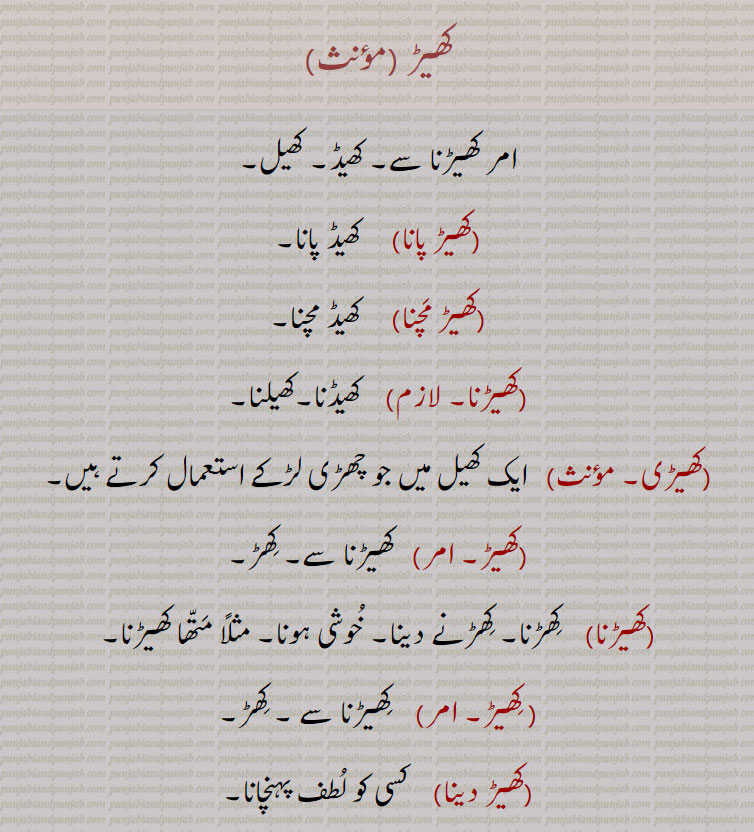 کھیڑ (مؤنث)
امر کھیڑنا سے۔ کھیڈ۔ کھیل۔
(کھیڑ پانا) کھیڈ پانا۔
(کھیڑ مَچنا) کھیڈ مچنا۔
(کھیڑنا۔ لازم) کھیڈنا۔کھیلنا۔
(کھیڑی۔ مؤنث) ایک کھیل میں جو چھڑی لڑکے استعمال کرتے ہیں۔
(کھیڑ۔ امر) کھیڑنا سے۔ کِھڑ۔
(کھیڑنا) کِھڑنا۔ کِھڑنے دینا۔ خُوشی ہونا۔ مثلاً مَتّھا کھیڑنا۔
(کِھیڑ۔ امر) کِھیڑنا سے ۔ کِھڑ۔
(کھیڑ دینا) کسی کو لُطف پہنچانا۔